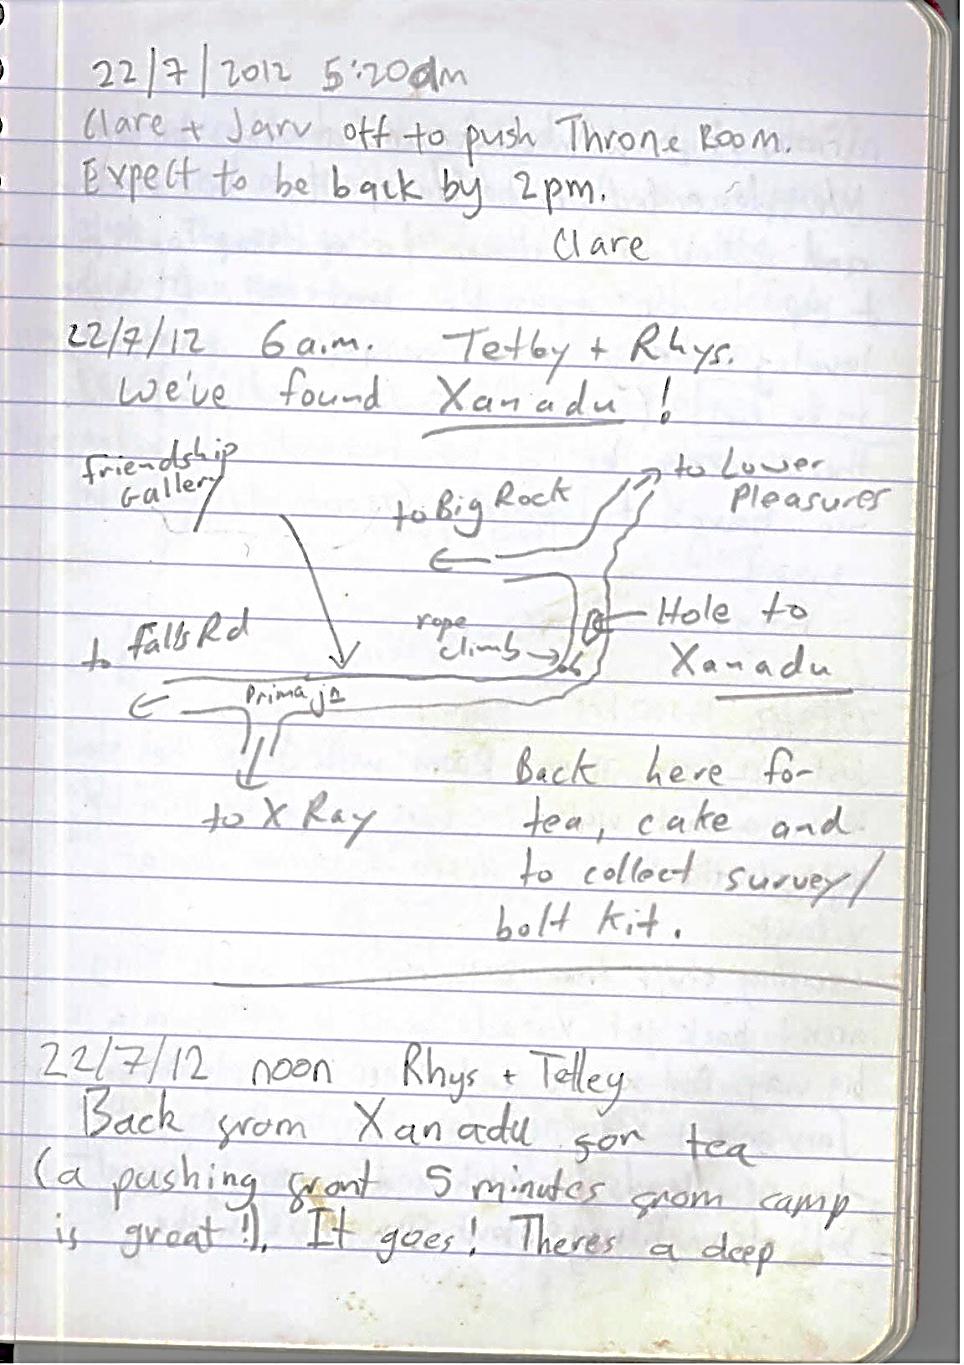 22/7/2012 5:20am
Clare + Jarv off to push Throne Room.
Expect to be back by 2pm.
Clare
22/7/12 6 a.m. Tetley + Rhys.
We've found Xanadu!
friendship
Gallery
to Big Rock
to Lower
Pleasures
to Falls Rd
rope
climb
Hole to
Xanadu
Prima jn
to X Ray
Back here for
tea, cake and
to collect survey/
bolt kit.
22/7/12 noon Rhys + Tetley
Back from Xanadu for tea
(a pushing front 5 minutes from camp
is great!). It goes! Theres a deep